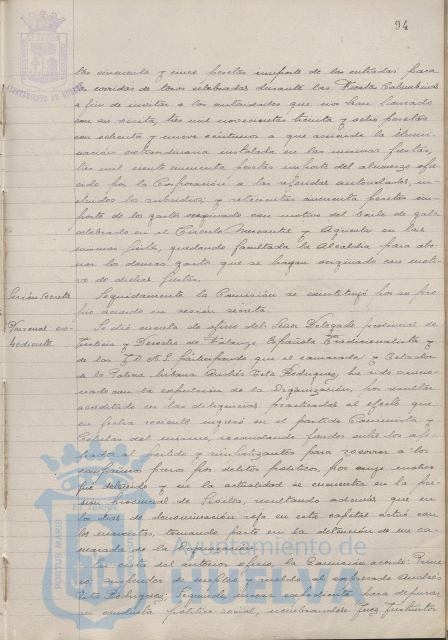 94
tas cincuenta y cinco pesetas importe de las entradas para
las corridas de toros celebradas durante las Fiestas Colombinas
a fin de invitar a las autoridades que nos han honrado
con su visita, tres mil novecientas treinta y siete pesetas
con setenta y nueve céntimos a que asciende la ilumi-
nación extraordinaria instalada en las mismas fiestas,
tres mil ciento cincuenta pesetas importe del almuerzo ofre-
cido por la Corporación a las referidas autoridades, in-
cluidos los subsidios; y setecientas cincuenta pesetas im-
porte de los gastos originado con motivo del baile de gala
celebrado en el Círculo Mercantil y Agrícola en las
mismas fiestas, quedando facultada la Alcaldía para abo-
nar los demás gastos que se hayan originado con moti-
vo de dichas fiestas.
Sesión Secreta
Seguidamente la Comisión se constituyó por su pro-
pio acuerdo en sesión secreta.
Personal ex-
pediente
Se dió cuenta de oficio del Señor Delegado provincial de
Justicia y Derecho de Falange Española Tradicionalista y
de las J.O.N.S. participando que el camarada y Celador
de la Policía Urbana Andrés Rodríguez, ha sido sancio-
nado con la expulsión de la Organización, por resultar
acreditado en las diligencias practicadas al efecto que
en fecha reciente ingresó en el partido Comunista y
Células del mismo, recaudando fondos entre los afi-
liados al partido y simpatizantes para socorrer a los
compañeros presos por delitos políticos, por cuyo motivo
fué detenido y en la actualidad se encuentra en la pri-
sión provincial de Sevilla, resultando además que en
los días de dominación roja en esta capital actuó con
los marxistas, tomando parte en la detención de un ca-
marada de la Organización.
En vista del anterior oficio, la Comisión acordó: Prime-
ro, suspender de empleo y sueldo al empleado Andrés
Rodríguez; Segundo, incoar expediente para depurar
su conducta político-social, nombrándose Juez Instructor
AYUNTAMIENTO DE HUELVA
Ayuntamiento de
HUELVA
PORTUS MARIS